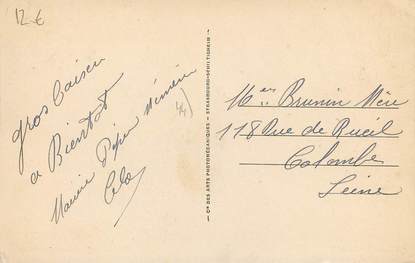 12 €
gros baiser
a Bientot
Mamie Pépin Mémère
44
Cie DES ARTS PHOTOMÉCANIQUES - STRASBOURG-SCHILTIGHEIM
Mme Brunin Mère
118 Rue de Rueil
Colombe
Seine